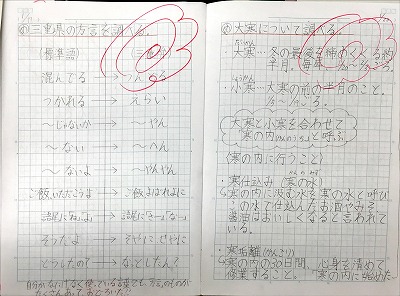 三重県の方言を調べる。
(標準語)
混んでる → つんどる
つかれる → えらい
〜じゃないか → 〜やん
〜ない → 〜へん
〜ないよ → 〜やんやん
ご飯いただこうよ → ご飯よばれよに
そうだよ → そやに せやに
どうしたの? → なっとしたん?
自分がなにげなく使っている言葉でも、方言のものが
たくさんあって、おどろいた。
大寒について調べる。
だいかん
大寒…冬の最後を締めくくる約
半月。毎年
小寒…大寒の前の半月のこと。
大寒と小寒を合わせて
「寒の内(かんのうち)」と呼ぶ。
(寒の内に行うこと)
・寒仕込み (寒の水)
寒の内に汲む水を寒の水と呼び
この水で仕込んだお酒やみそ、
醤油はおいしくなると言われて
いる。
・寒垢離(かんごり)
寒の内の30日間、心身を清めて
修業すること。